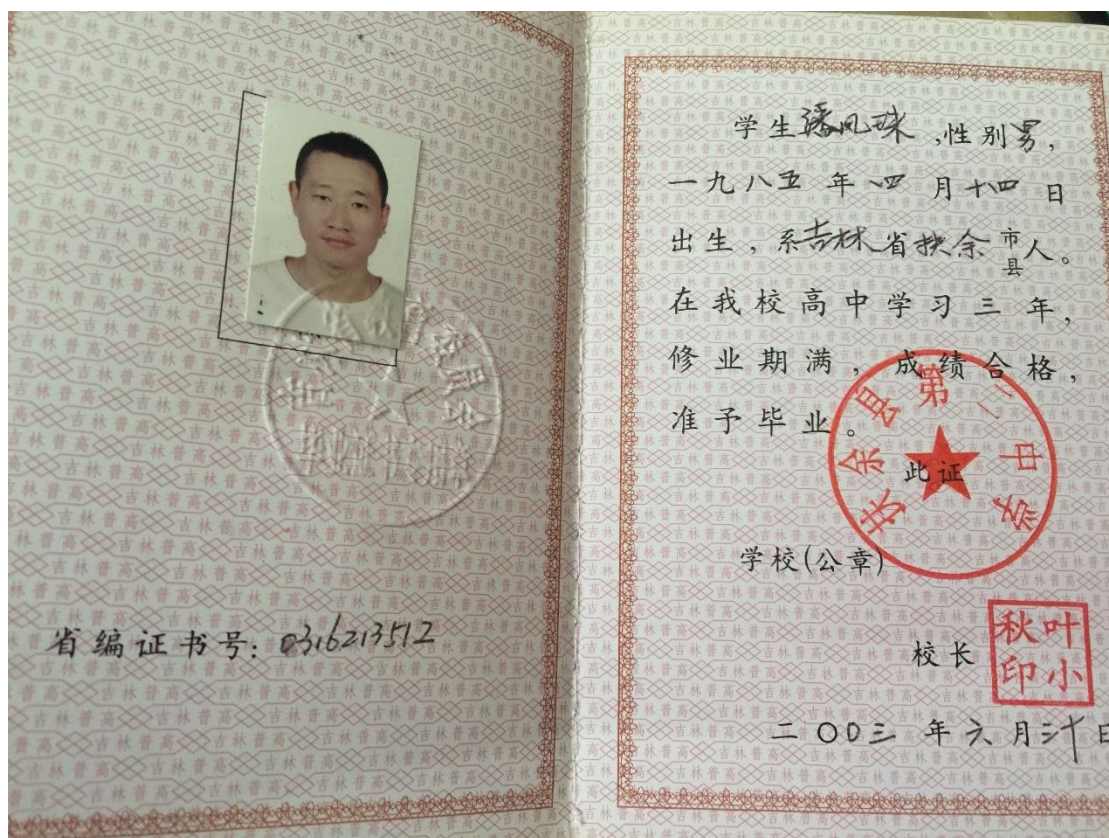 省编证书号: 0316213512
学生潘凤珠,性别男,
一九八五年四月十四日
出生,系吉林省扶余市县人。
在我校高中学习三年,
修业期满,成绩合格,
准予毕业。
此证
扶余县第二中学
学校(公章)
校长
叶小秋印
二〇〇三年六月三十日